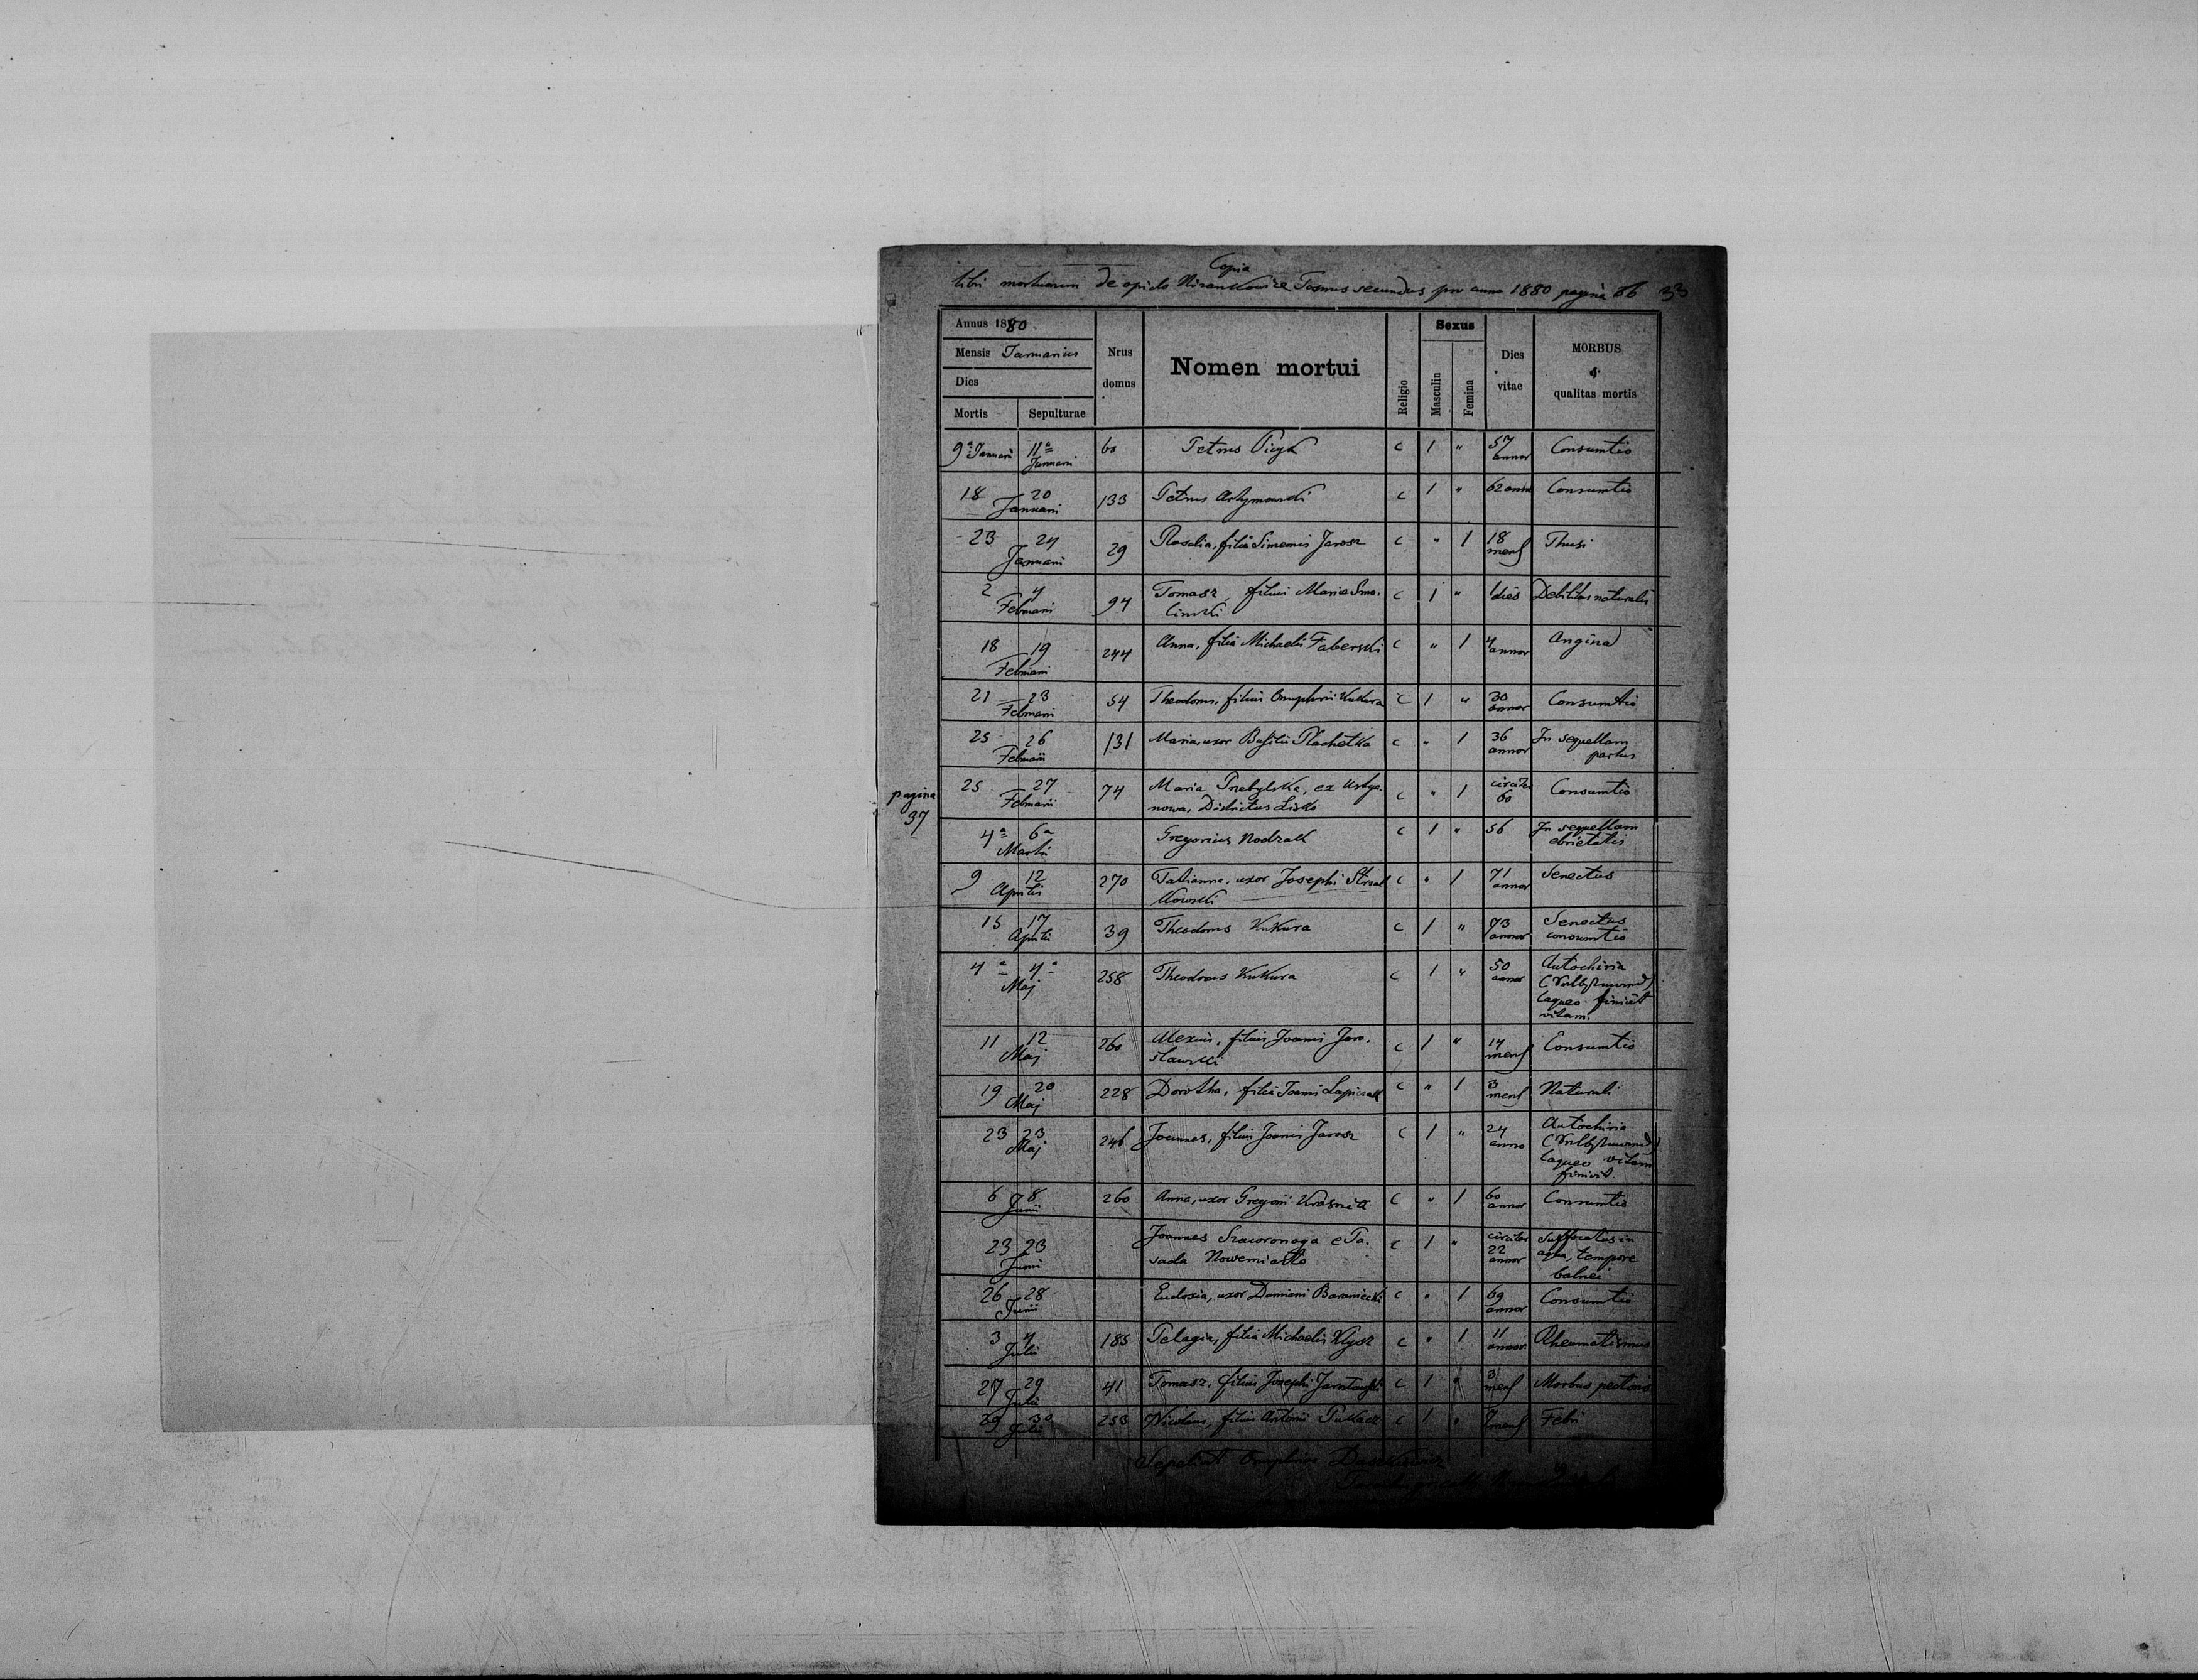 Copia
libri mortuorum de opido Nizankowice Tomus secundus pro anno 1880 pagina 36 33
Annus 1880.
Mensis Januarius
Dies
Mortis Sepulturae
Nrus domus
Nomen mortui
Religio
Sexus
Masculin
Femina
Dies vitae
MORBUS
&
qualitas mortis
9a Januarii 11a Januarii 60 Petrus c 1 " 57 annor Consumtio
18 20 Januarii 133 Petrus Artymowski c 1 " 62 annor Consumtio
23 24 Januarii 29 Rosalia, filia Simeonis Jarosz c " 1 18 mens Thusi
2 4 Februarii 94 Tomasz, filius Maria Smo-
linski c 1 " 1 dies Debilitas naturalis
18 19 Februarii 244 Anna, filia Michaelis Faberski c " 1 4 annor Angina
21 23 Februarii 54 Theodorus, filius Onuphrii Kukura c 1 " 30 annor Consumtio
25 26 Februarii 131 Maria, uxor Basilii Plachetka c " 1 36 annor In sequellam
partus
pagina
37
25 27 Februarii 74 Maria Przebylska, ex Ustya-
nowa, Districtus Lisko c " 1 circiter 60 Consumtio
4a 6a Martii Gregorius Nodzak c 1 " 56 In sequellam
ebrietatis
9 12 Aprilis 270 Tatianna, uxor Josephi Strzal
kowski c " 1 71 annor Senectus
15 17 Aprilis 39 Theodorus Kukura c 1 " 73 annor Senectus
consumtio
4a 4a Maj 258 Theodorus Kukura c 1 " 50 annor Autochiria
(Selbstmord)
laqueo finivit
vitam.
11 12 Maj 260 Alexius, filius Joannis Jaro-
slawski c 1 " 14 mens Consumtio
19 20 Maj 228 Dorotha, filia Joannis Lapiczak c " 1 3 mens Naturali
23 23 Maj 246 Joannes, filius Joannis Jarosz c 1 " 24 anno Autochiria
(Selbstmord)
laqueo vitam
finivit.
6 8 Junii 260 Anna, uxor Gregorii Krasnik c " 1 60 annor Consumtio
23 23 Junii Joannes e Po-
sada Nowemiasto c 1 " circiter 22 annor Suffocatus in
aqua, tempore
balnei
26 28 Junii Eudoxia, uxor Damiani Baraniecki c " 1 69 annor Consumtio
3 4 Julii 185 Pelagia, filia Michaelis Klysz c " 1 11 annor. Rheumatismus
27 29 Julii 41 Tomasz, filius Josephi Jaroslawski c 1 " 3 mens Morbus pectoris
29 30 Julii 253 Nicolaus, filius Antonii Pukacz c 1 " 7 mens Febri
Sepelivit Onuphrius